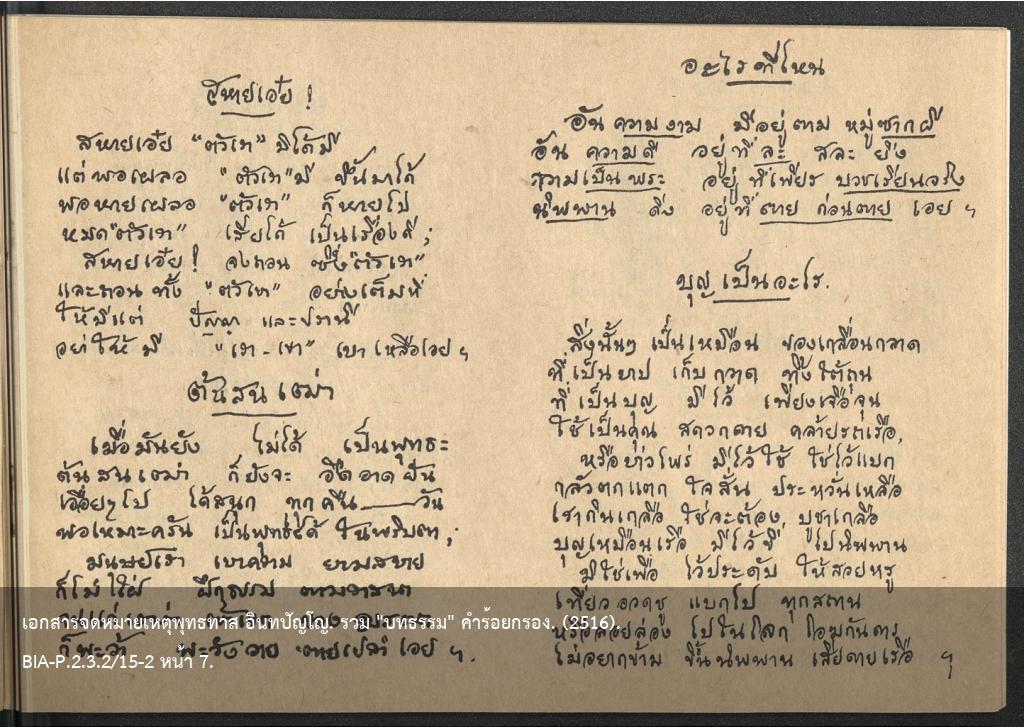 สหายเอ๋ย !
สหายเอ๋ย "ตัวเรา" มิได้มี
แต่พอเผลอ "ตัวเรา" มี ขึ้นมาได้
พอหายเผลอ "ตัวเรา" ก็หายไป
หมด "ตัวเรา" เสียได้ เป็นเรื่องดี ;
สหายเอ๋ย ! จงถอน ซึ่ง "ตัวเรา"
และถอนทั้ง "ตัวเขา" อย่างเต็มที่
ให้มีแต่ ปัญญา และปรานี
อย่าให้มี "เรา-เขา" เบาเหลือเอย ฯ
ต้นสนเฒ่า
เมื่อมันยัง ไม่ได้ เป็นพุทธะ
ต้นสนเฒ่า ก็ยังจะ อืดอาดฝัน
เอื่อยๆไป ได้สนุก ทุกคืน——วัน
พอเหมาะครัน เป็นพุทธะได้ ในพริบตา ;
มนุษย์เรา เบาความ ยามสบาย
ก็ไม่ใฝ่ ตามวาสนา
ก็พะว้า พะวังวาย ตายเปล่า เอย ฯ
อะไร ที่ไหน
อันความงาม มีอยู่ตาม หมู่ซากผี
อัน ความดี อยู่ที่ละ สละ ยิ่ง
ความเป็นพระ อยู่ ที่เพียร บวชเรียนจริง
นิพพาน ดิ่ง อยู่ที่ ตาย ก่อนตาย เอย ฯ
บุญ เป็นอะไร.
สิ่งนั้นๆ เป็นเหมือน ของเกลื่อนกลาด
ที่เป็นบาป เก็บกวาด ทิ้งใต้ถุน
ที่เป็นบุญ มีไว้ เพียงเจือจุน
ใช้เป็นคุณ สะดวกดาย คล้ายรถเรือ,
หรือบ่าวไพร่ มีไว้ใช้ ใช่ไว้แบก
กลัวตกแตก ใจสั่น ประหวั่นเหลือ
เรากินเกลือ ใช่จะต้อง บูชาเกลือ
บุญเหมือนเรือ มีไว้ขี่ ไปนิพพาน
มิใช่เพื่อ ไว้ประดับ ให้สวยหรู
เที่ยวอวดชู แบกไป ทุกสถาน
หรือลอยล่อง ไปในโลก โอฆกันดาร
ไม่อยากข้าม ขึ้นนิพพาน เสียดายเรือ ฯ
เอกสารจดหมายเหตุพุทธทาส อินทปัญโญ. รวม "บทธรรม" คำร้อยกรอง. (2516).
BIA-P.2.3.2/15-2 หน้า 7.